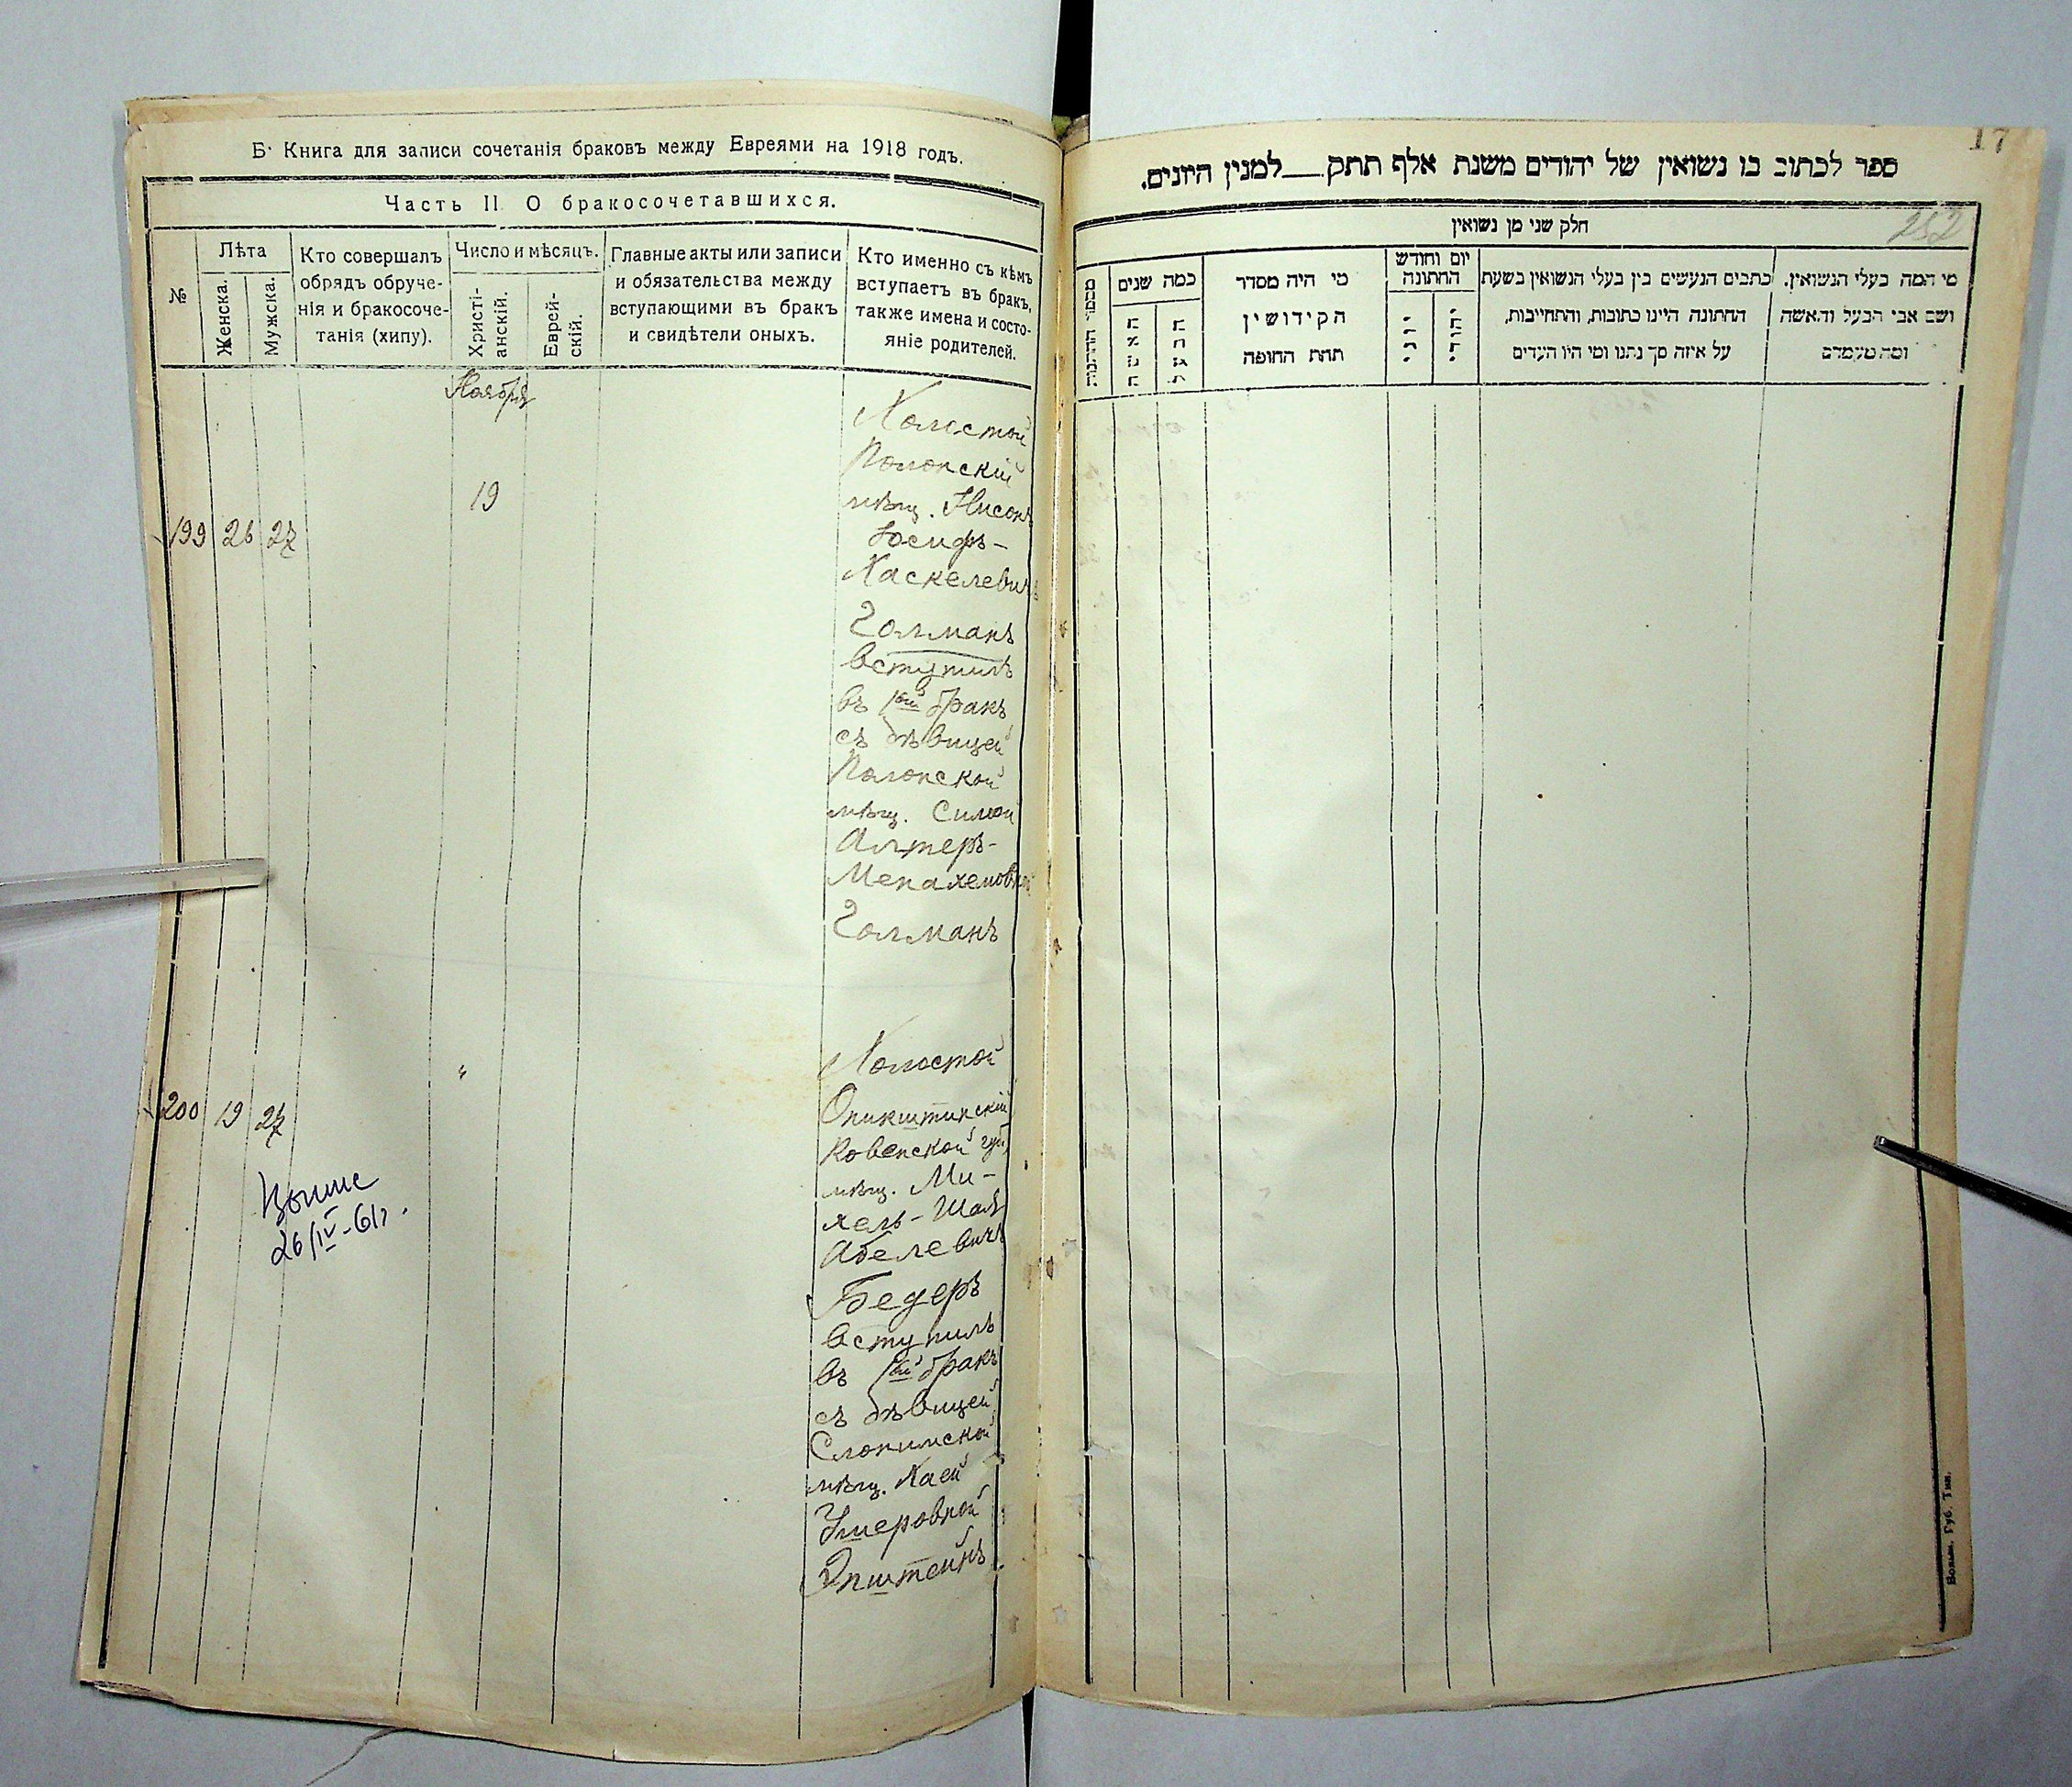 Б. Книга для записи сочетанія браковъ между Евреями на 1918 годъ.
Часть II. О бракосочетавшихся.
№
Лѣта
Женска.
Мужска.
Кто совершалъ
обрядъ обруче-
нія и бракосоче-
танія (хипу).
Число и мѣсяцъ.
Христі-
анскій.
Еврей-
скій.
Главные акты или записи
и обязательства между
вступающими въ бракъ
и свидѣтели оныхъ.
Кто именно съ кѣмъ
вступаетъ въ бракъ,
также имена и состо-
яніе родителей.
Ноября
199 26 27
19
Холостой
Полонскій
мѣщ. Нисонъ
Іосифъ-
Хаскелевичъ
Голманъ
вступилъ
въ 1ый бракъ
съ дѣвицей
Полонской
мѣщ. Симой
Алтеръ-
Менахемовной
Голманъ
200 19 27
"
Холостой
Оникштинскій
Ковенской губ.
мѣщ. Ми-
хель-Шая
Абелевичъ
Бедеръ
вступилъ
въ 1ый бракъ
съ дѣвицей
Слонимской
мѣщ. Хаей
Ушеровной
Эпштейнъ.
26/IV-61г.
17
ספר לכתוב בו נשואין של יהודים משנת אלף תתק___למנין היונים.
252
חלק שני מן נשואין
כמה שנים
האשה
הבעל
מי היה מסדר
הקידושין
תחת החופה
יום וחודש
החתונה
יוני
יהודי
כתבים הנעשים בין בעלי הנשואין בשעת
החתונה היינו כתובות, והתחייבות,
על איזה סך נתנו ומי היו העדים
מי המה בעלי הנשואין.
ושם אבי הבעל והאשה
ומה מעמדם
Волын. Губ. Тип.